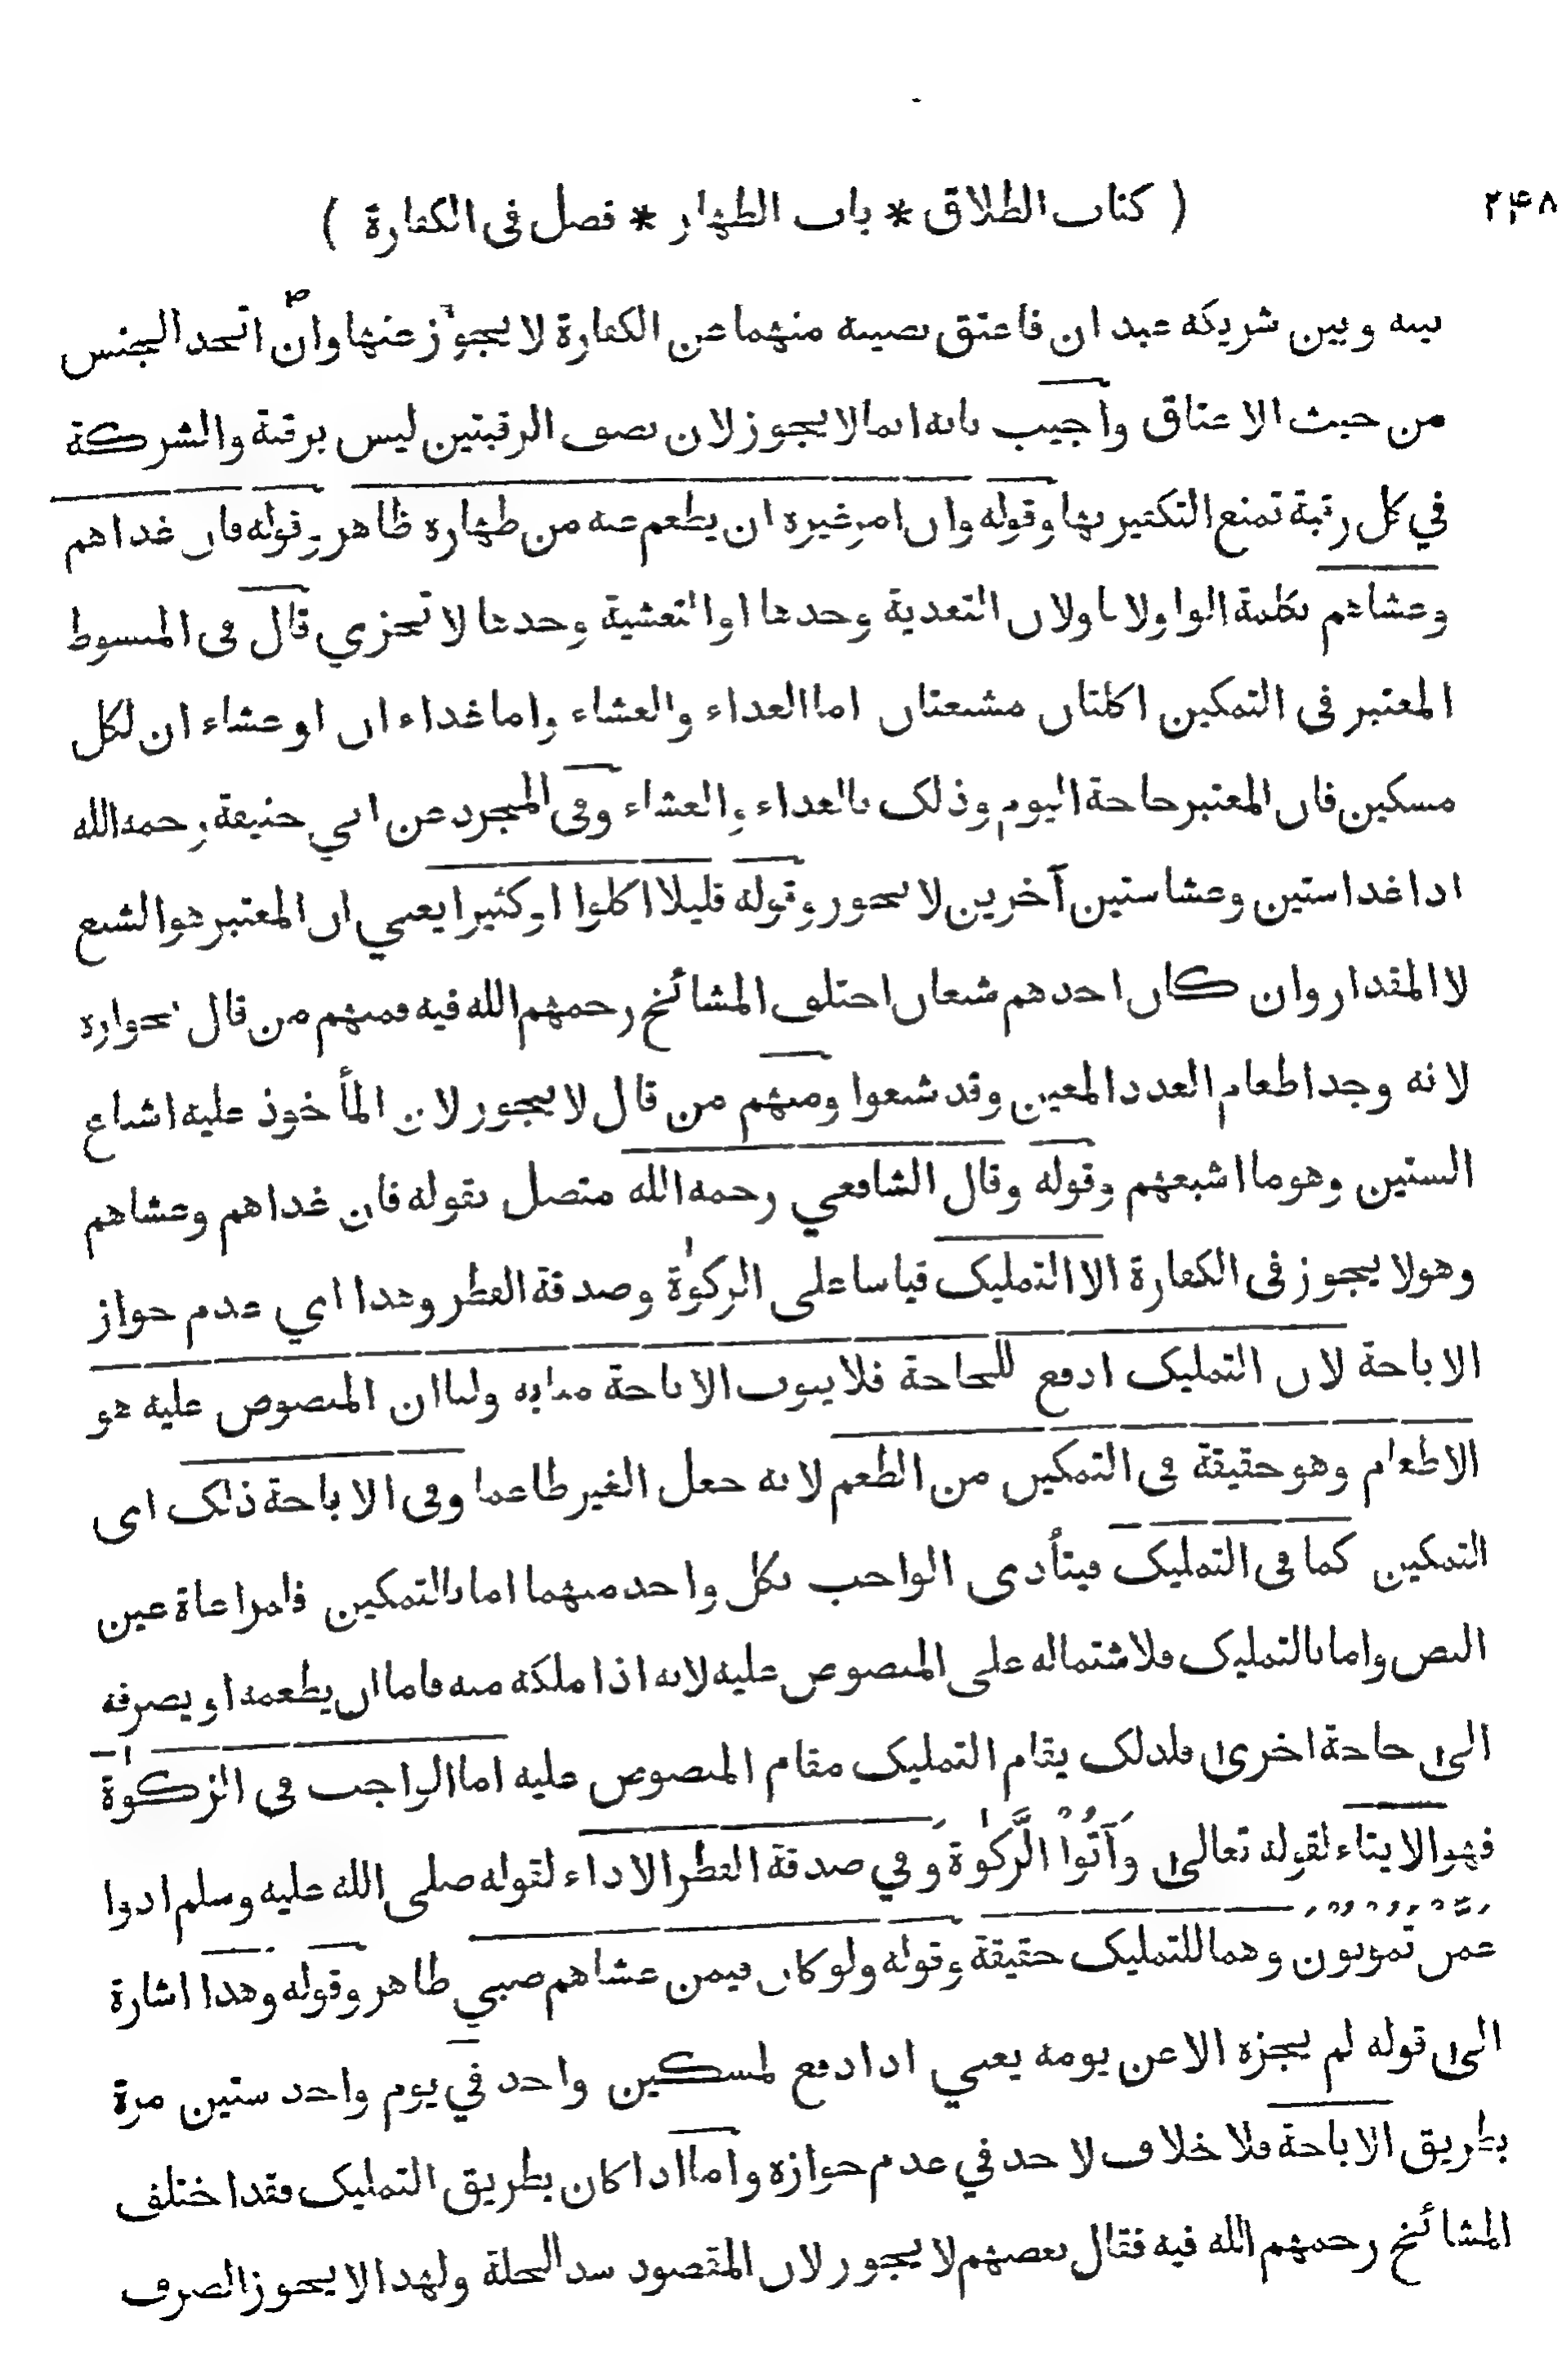 ۲۴۸ ( كتاب الطلاق * باب الظهار * فصل فى الكفارة )
بينه وبين شريكه عبدان فاعتق نصيبه منهما عن الكفارة لا يجوز عنها وان اتحد الجنس
من حيث الاعتاق واجيب بانه انما لا يجوز لان نصف الرقبتين ليس برقبة والشركة
في كل رقبة تمنع التكفير بها وقوله وان امر غيره ان يطعم عنه من ظهاره ظاهر وقوله فان غداهم
وعشاهم بكلمة الواو لا باو لان التغدية وحدها او التعشية وحدها لا تجزي قال فى المبسوط
المعتبر فى التمكين اكلتان مشبعتان اما الغداء والعشاء واما غداءان او عشاءان لكل
مسكين فان المعتبر حاجة اليوم وذلک بالغداء والعشاء وفى المجرد عن ابي حنيفة رحمه الله
اذا غدا ستين وعشا ستين آخرين لا يجوز وقوله قليلا اكلوا او كثيرا يعني ان المعتبر هو الشبع
لا المقدار وان كان احدهم شبعان اختلف المشائخ رحمهم الله فيه فمنهم من قال بجوازه
لانه وجد اطعام العدد المعين وقد شبعوا ومنهم من قال لا يجوز لان المأخوذ عليه اشباع
الستين وهو ما اشبعهم وقوله وقال الشافعي رحمه الله متصل بقوله فان غداهم وعشاهم
وهو لا يجوز فى الكفارة الا التمليک قياسا على الزكوٰة وصدقة الفطر وهذا اي عدم جواز
الاباحة لان التمليک ادفع للحاجة فلا ينوب الاباحة منابه ولنا ان المنصوص عليه هو
الاطعام وهو حقيقة فى التمكين من الطعم لانه جعل الغير طاعما وفى الاباحة ذلک اى
التمكين كما فى التمليک فيتأدى الواجب بكل واحد منهما اما بالتمكين فلمراعاة عين
النص واما بالتمليک فلاشتماله على المنصوص عليه لانه اذا ملكه منه فاما ان يطعمه او يصرفه
الىٰ حاجة اخرىٰ فلذلک يقام التمليک مقام المنصوص عليه اما الواجب فى الزكوٰة
فهو الايتاء لقوله تعالىٰ وَآتُوْا الزَّكٰوةَ وفي صدقة الفطر الاداء لقوله صلى الله عليه وسلم ادوا
عَمَّنْ تَمُوْنُوْنَ وهما للتمليک حقيقة وقوله ولو كان فيمن عشاهم صبي ظاهر وقوله وهذا اشارة
الىٰ قوله لم يجزه الا عن يومه يعني اذا دفع لمسكين واحد في يوم واحد ستين مرة
بطريق الاباحة فلا خلاف لاحد في عدم جوازه واما اذا كان بطريق التمليک فقد اختلف
المشائخ رحمهم الله فيه فقال بعضهم لا يجوز لان المقصود سد الخلة ولهذا لا يجوز الصرف